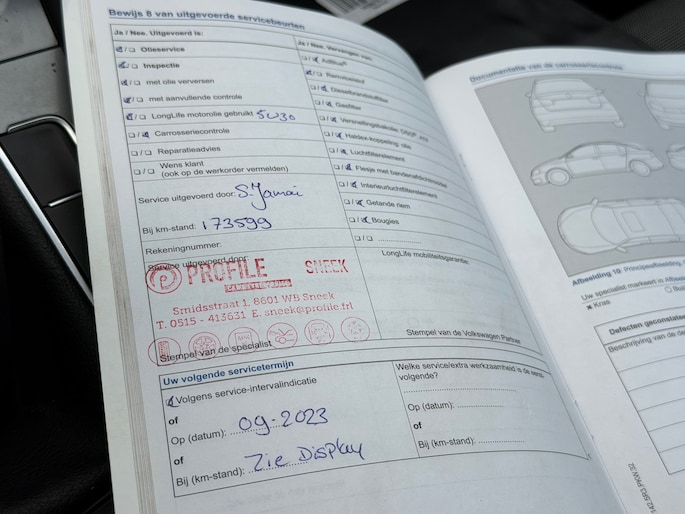 Bewijs 8 van uitgevoerde servicebeurten
Ja / Nee. Uitgevoerd is:
Olieservice
Inspectie
met olie verversen
met aanvullende controle
LongLife motorolie gebruikt 5W30
Carrosseriecontrole
Reparatieadvies
Wens klant
(ook op de werkorder vermelden)
Service uitgevoerd door: S. Jamai
Bij km-stand: 173599
Rekeningnummer:
Service uitgevoerd door:
PROFILE SNEEK
Smidsstraat 1, 8601 WB Sneek
T. 0515 - 413631 E. sneek@profile.frl
Stempel van de specialist
Ja / Nee. Vervangen van:
AdBlue®
Remvloeistof
Dieselbrandstoffilter
Gasfilter
Versnellingsbakolie: DSG®
Haldex-koppeling: olie
Luchtfilterelement
Flesje met bandenafdichtmiddel
Interieurluchtfilterelement
Getande riem
Bougies
LongLife mobiliteitsgarantie:
Stempel van de Volkswagen Partner
Uw volgende servicetermijn
Volgens service-intervalindicatie
of
Op (datum): 09-2023
of
Bij (km-stand): Zie Display
Welke service/extra werkzaamheid is de eerst-
volgende?
Op (datum):
of
Bij (km-stand):
Documentatie van de carrosseriecontrole
Afbeelding 10
Uw specialist markeert in Afbeel
x Kras
Defecten geconstatee
Beschrijving van de de
142.5R3.PKW.32